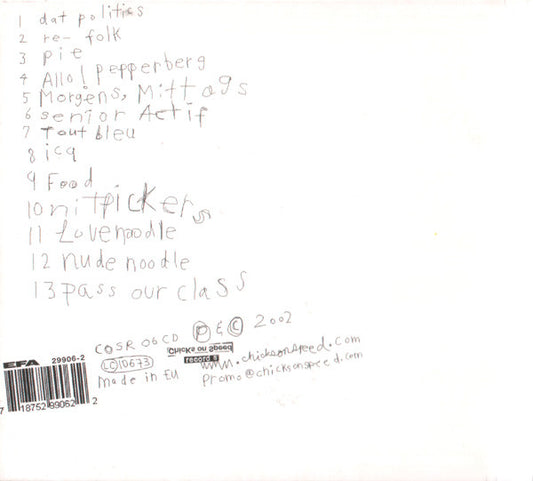 1 dat politics
2 re- folk
3 pie
4 Allo! pepperberg
5 Morgens, Mittags
6 senior Actif
7 Tout bleu
8 icq
9 Food
10 nitpickers
11 Lovenoodle
12 nude noodle
13 pass our class
COSR 06 CD P & C 2002
EFA 29906-2
LC10673
Chicks on Speed records
www.chicksonspeed.com
Made in EU
promo@chicksonspeed.com
7 18752 99062 2